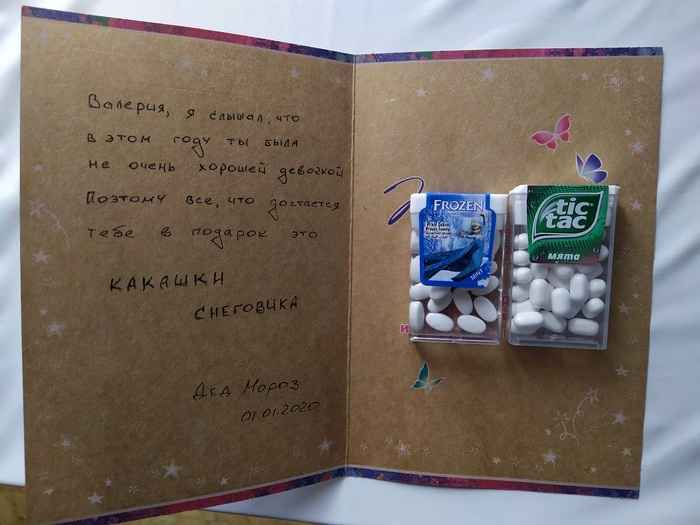 Валерия, я слышал, что
в этом году ты была
не очень хорошей девочкой
Поэтому все, что достается
тебе в подарок это
КАКАШКИ
СНЕГОВИКА
Дед Мороз
01.01.2020
FROZEN
MINT
tic
tac
мята